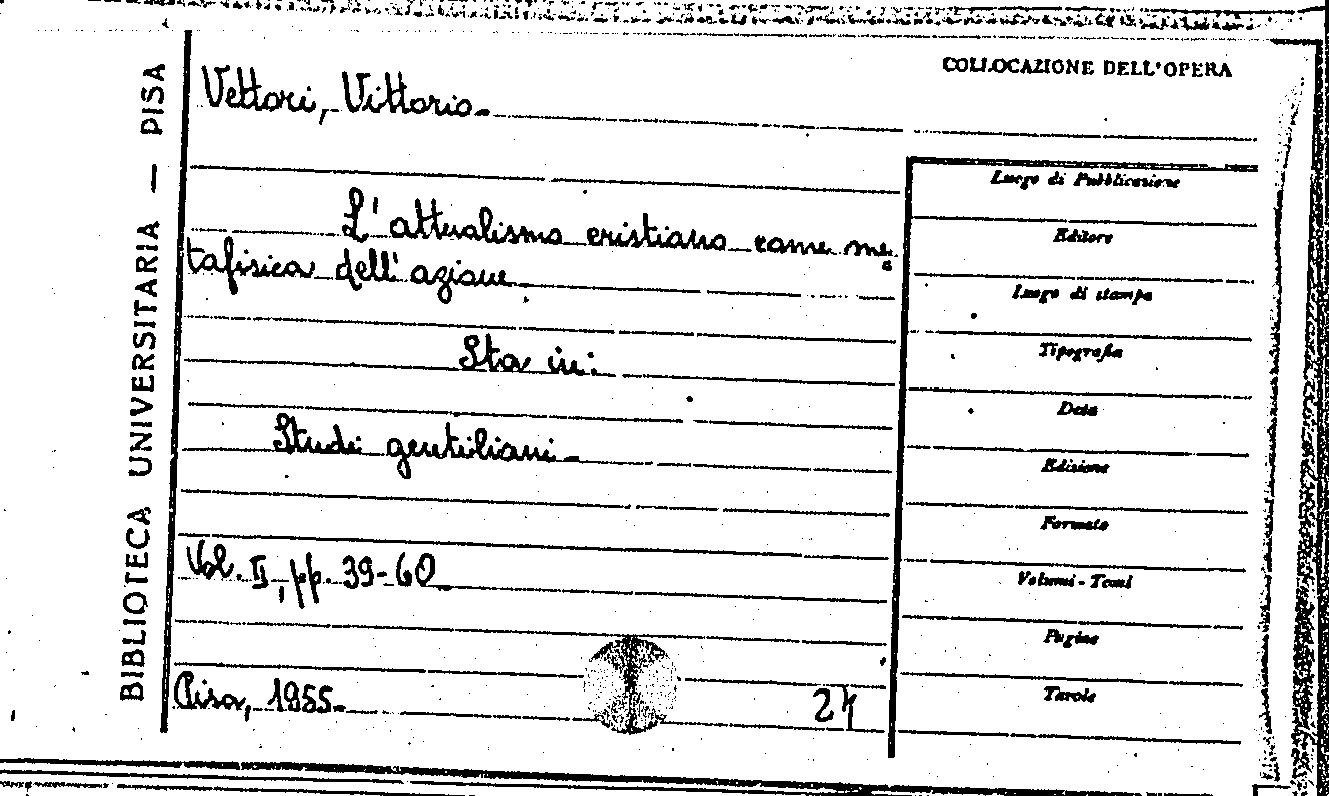 COLLOCAZIONE DELL'OPERA
BIBLIOTECA UNIVERSITARIA — PISA
Vettori, Vittorio.
L'attualismo cristiano come me
tafisica dell'azione
Sta in:
Studi gentiliani -
Vol. II, pp. 39-60
Pisa, 1955.
24
Luogo di Pubblicazione
Editore
Luogo di stampa
Tipografia
Data
Edizione
Formato
Volumi - Tomi
Pagine
Tavole